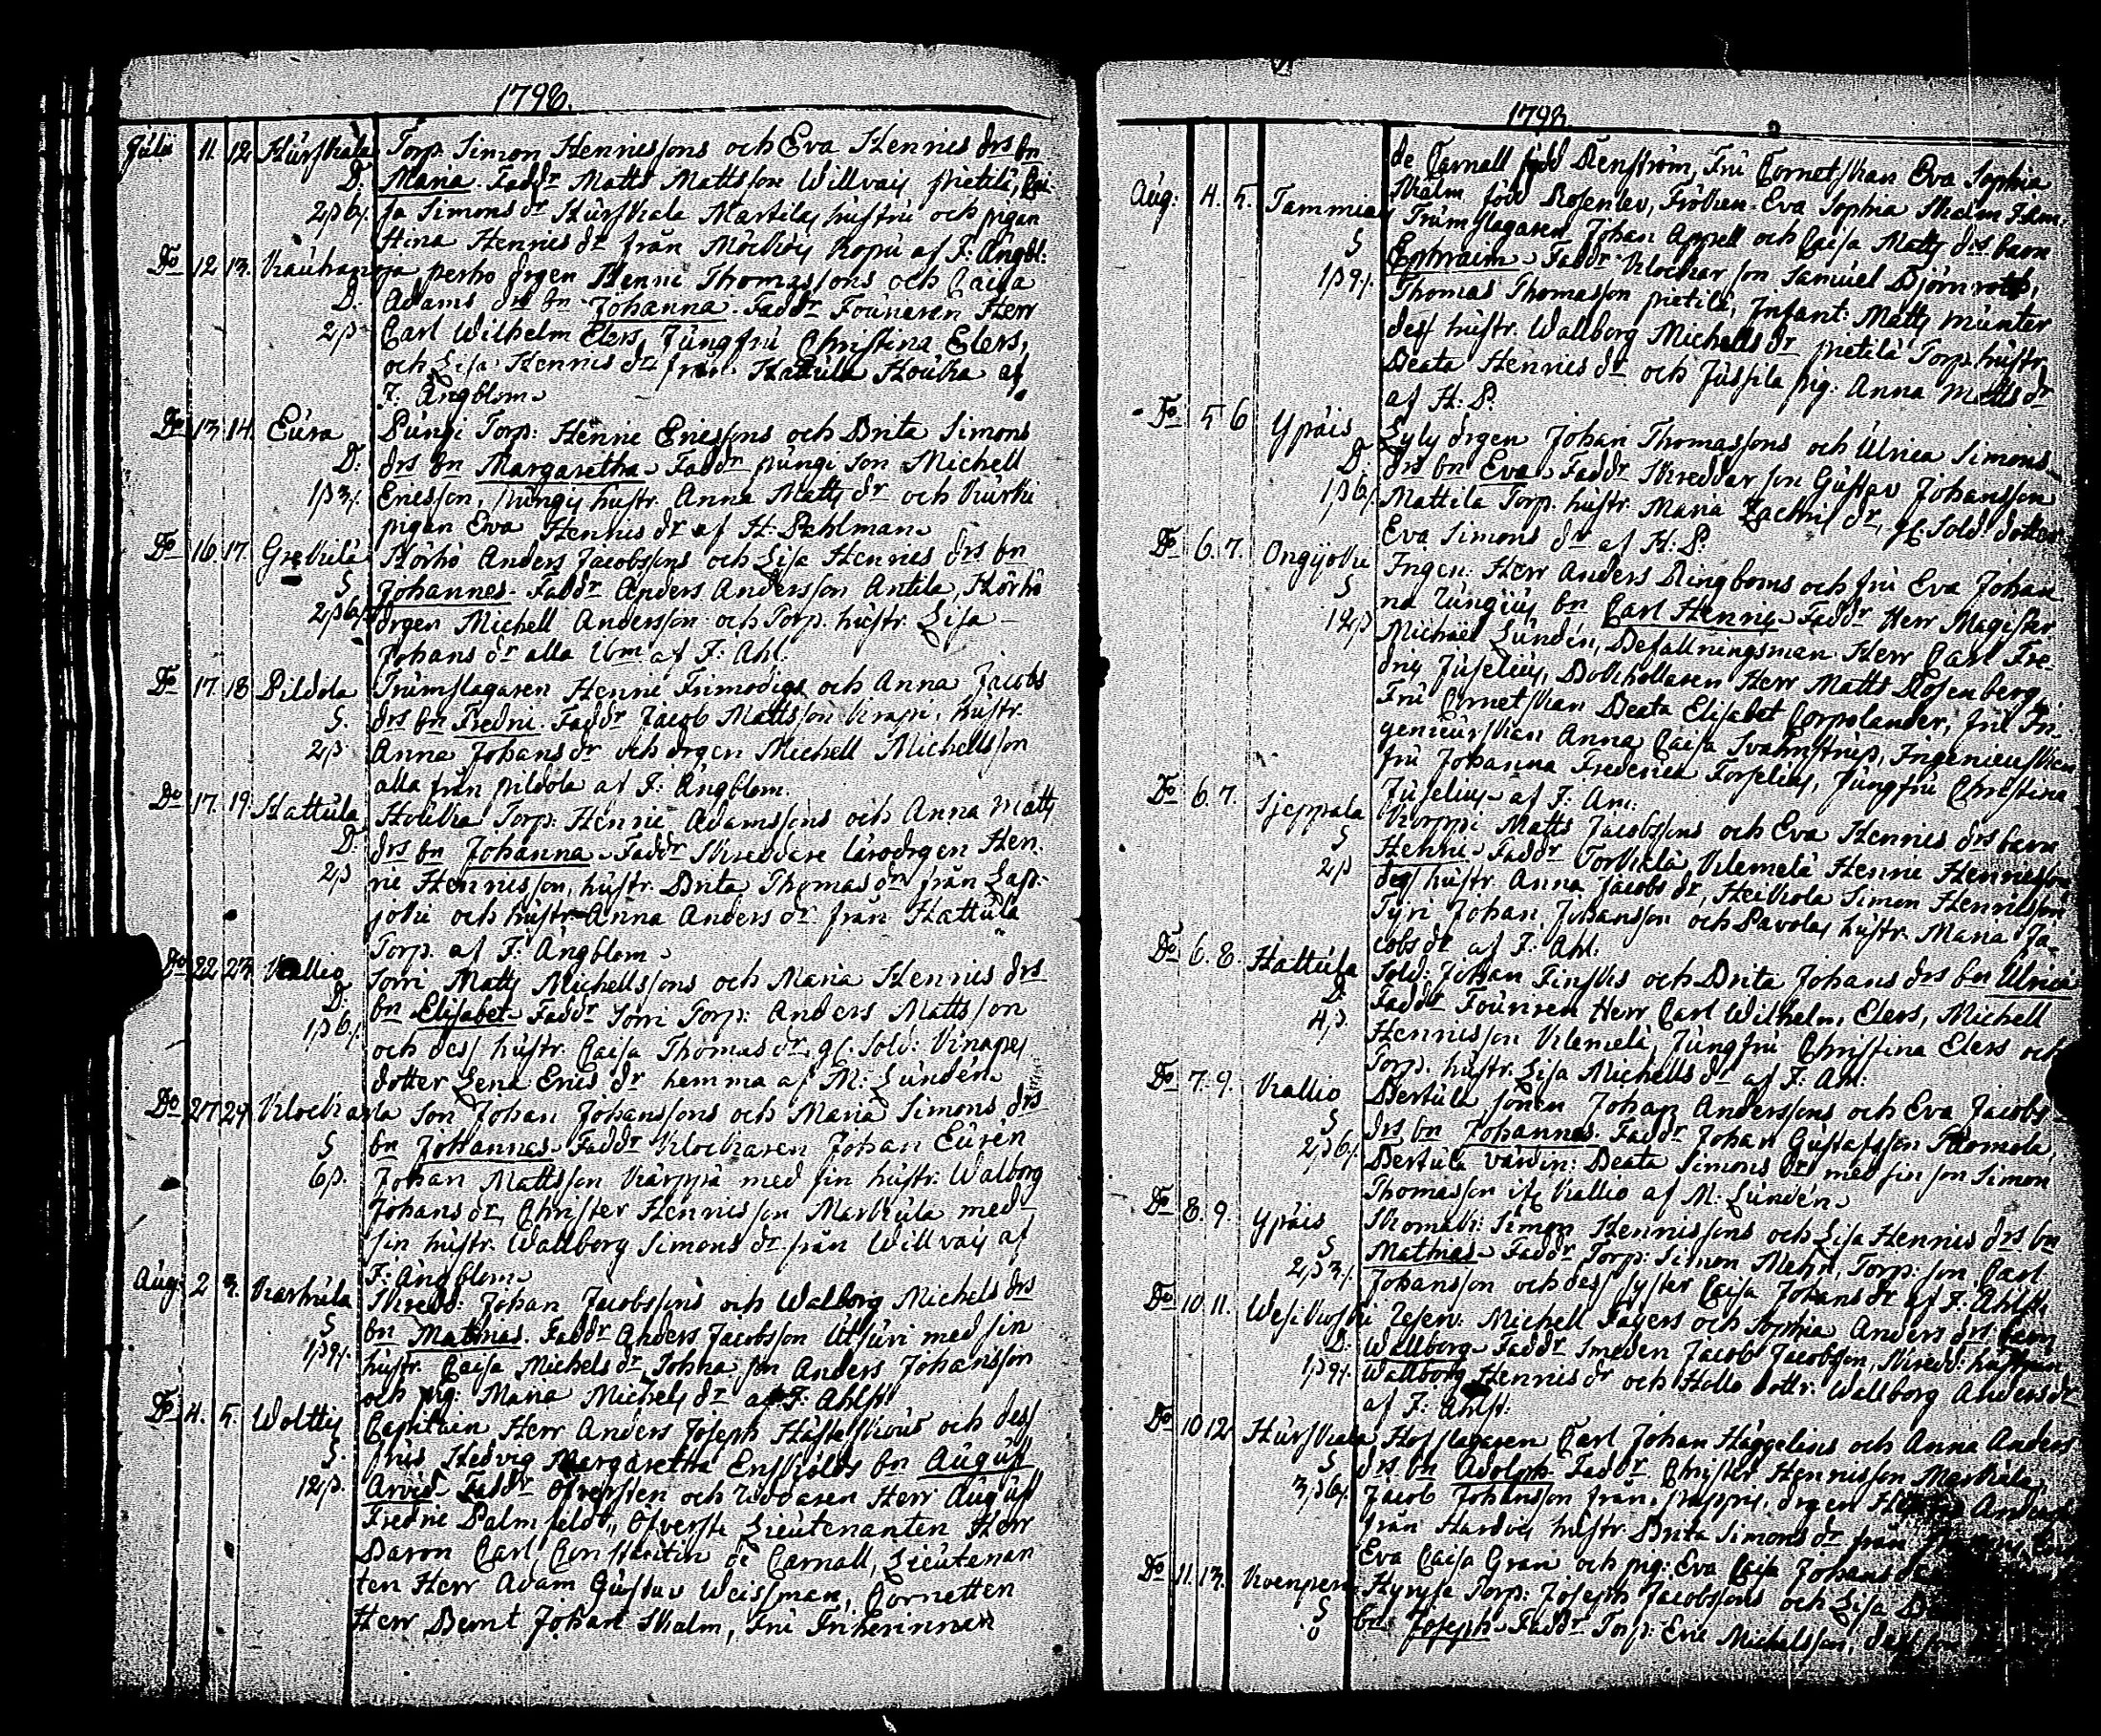 1798.
Julii 11. 12 Hurskala Torp. Simon Henricssons och Eva Henrics drs bn
D. Maria. Faddr Matts Mattsson Willvais pietilä, Cai-
2ß 6/. sa Simons dr Hurskala Martilas hustru och pigan
Stina Henrics dr från Möckös Kopu af F: Ängbl:
Do 12 13. Kauhanoja perho drgen Henric Thomassons och Caisa
D. Adams drs bn Johanna. Faddr Founeren Herr
2ß Carl Wilhelm Elers, Jungfru Christina Elers,
och Lisa Henrics dr från Hattula Houka af
F. Ängblom
Do 13. 14. Eura Pungi Torp: Henric Ericssons och Brita Simons
D. drs bn Margaretha. Faddr pungi son Michell
1ß 3/. Ericsson, pungis hustr. Anna Matts dr och Kurki
pigan Eva Henrics dr af H. Pahlman
Do 16. 17. Grekilä Körkö Anders Jacobssons och Lisa Henrics drs bn
S Johannes. Faddr Anders Andersson Antila, Körkö
2ß 6/. drgen Michell Andersson och Torp. hustr. Lisa
Johans dr alla ibm af F. Ahl.
Do 17. 18 Pildola Trumslagaren Henric Frimodigs och Anna Jacobs
S. drs bn Fredric. Faddr Jacob Mattsson Krapi, hustr.
2ß Anna Johans dr och drgen Michell Michellsson
alla från pildola af F. Ängblom.
Do 17. 19. Hattula Houkka Torp: Henric Adamssons och Anna Matts
D. drs bn Johanna. Faddr Skreddare lärodrgen Hen-
2ß ric Henricsson, hustr. Brita Thomas dr från Laso-
joki och hustr Anna Anders dr från Hattula
Torp. af F. Ängblom
Do 22 23. Kallio Torri Matts Michellssons och Maria Henrics drs
D. bn Elisabet. Faddr Torri Torp: Anders Mattsson
1ß 6/. och dess hustr. Caisa Thomas dr, gl. Sold: Knapes
dotter Lena Erics dr hemma af M: Lundén
Do 27. 29. Klockarla Son Johan Johanssons och Maria Simons drs
S bn Johannes. Faddr Klockaren Johan Eurén
6ß. Johan Mattsson Karppa med sin hustr. Walborg
Johans dr, Christer Henricsson Markula med
sin hustr. Wallborg Simons dr från Willvais af
F. Ängblom
Aug. 2 3. Karhula Skredd: Johan Jacobssons och Walborg Michels drs
S bn Mathias. Faddr Anders Jacobsson Utsuri med sin
1ß 9/. hustr. Caisa Michels dr, Johna son Anders Johansson
och pig. Maria Michels dr af F. Ahlst.
Do 4. 5. Wolttis Capitain Herr Anders Joseph och dess
S. frus Hedvig Margaretha Ensköölds bn August
12ß. Arvid. Faddr Öfversten och Riddaren Herr August
Fredric Palmfeldt, Öfverste Lieutenanten Herr
Baron Carl Constantin de Carnall, Lieutenan
ten Herr Adam Gustav Weissman, Cornetten
Herr Bernt Johan Skalm, Fru Friherinnan
1798.
de Carnall född Stenström, Fru Cornetskan Eva Sophia
Skalm född Rosenlev, Fröken Eva Sophia Skalm
Aug: 4. 5. Tammiais Trumslagaren Johan Appell och Caisa Matts drs barn
S Ephraim. Faddr Klockar son Samuel Björnroth,
1ß 9/. Thomas Thomasson pietilä, Infant: Matts Munter
dess hustr. Wallborg Michells dr, pietilä Torp. hustr.
Beata Henrics dr och Jussila pig: Anna Matts dr
af H: P.
Do 5 6 Ypäis Lyly drgen Johan Thomassons och Ulrica Simons
D. drs bn Eva. Faddr Skreddar son Gustav Johansson
1ß 6/. Mattila Torp. hustr. Maria Zachris dr, gl. Sold: dotter
Eva Simons dr af H. P.
Do 6. 7. Ongijoki Ingen. Herr Anders Ringboms och fru Eva Johan
S na Rungius bn Carl Henric. Faddr Herr Magister
12ß Michael Lundén, Befallningsman Herr Carl Fre-
dric Juselius, Bokhollaren Herr Matts Rosenberg,
Fru Cornetskan Beata Elisabet Corpolander, fru In-
genieurskan Anna Caisa Svahnström, Ingenieurskan
fru Johanna Frederica Forselius, Jungfru Christina
Juselius af F. Am:
Do 6. 7. Sjeppala Korppi Matts Jacobssons och Eva Henrics drs barn
S Henric. Faddr Torkkelä Klemelä Henric Henricsson
2ß dess hustr. Anna Jacobs dr, Heikkola Simon Henricsson
Tyri Johan Johansson och Pavolas hustr. Maria Ja-
cobs dr af F. Ahl.
Do 6. 8. Hattula Sold: Johan Finskis och Brita Johans drs bn Ulrica
D. Faddr Founren Herr Carl Wilhelm Elers, Michell
4ß. Henricsson Klemelä, Jungfru Christina Elers och
Torp. hustr. Lisa Michells dr af F. Ahl.
Do 7. 9. Kallio Bertula sonen Johan Anderssons och Eva Jacobs
S drs bn Johannes. Faddr Johan Gustafsson Tuomola,
2ß 6/. Bertula värdin: Beata Simons dr med sin son Simon
Thomasson ifr Kallio af M. Lundén
Do 8. 9. Ypäis Skomak: Simon Henricssons och Lisa Henrics drs bn
S Mathias. Faddr Torp: Simon Mehr, Torp: son Carl
2ß 3/. Johansson och dess syster Caisa Johans dr af F. Ahlst.
Do 10. 11. Wesikoski Reserv. Michell Fagers och Sophia Anders drs barn
D. Wallborg. Faddr Smeden Jacob Jacobsson, Skredd: hustrun
1ß 9/. Wallborg Henrics dr och Hollo dottr. Wallborg Anders dr
af F. Ahlst.
Do 10 12 Hurskala Hofslagaren Carl Johan Häggelins och Anna Anders
S drs bn Adolph. Faddr Christer Henricsson Markula,
3ß 6/. Jacob Johansson från pappis, drgen
från Hardvis hustr. Brita Simons dr från
Eva Caisa Gran och pig: Eva Caisa Johans dr
Do 11. 13. Koenperä Hyrysa Torp: Joseph Jacobssons och Lisa
S bn Joseph. Faddr Torp. Eric Michelsson, dess
0